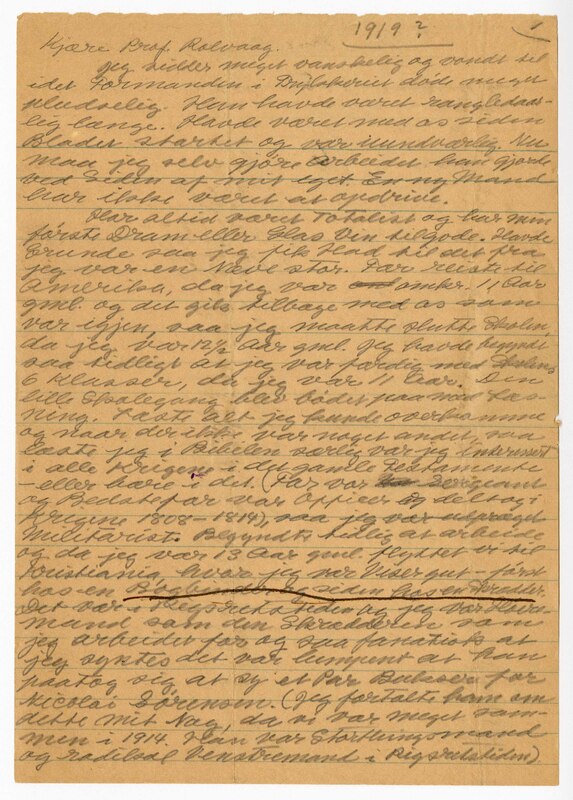 1919?
1
Kjære Prof. Rolvaag.
Jeg sidder meget vanskelig og vondt til
idet Formanden i Trykkeriet døde meget
pludselig. Han havde været
lig længe. Havde været med os siden
Bladet startet og var uundværlig. Nu
maa jeg selv gjøre Arbeidet han gjorde
ved Siden af mit eget. En ny Mand
har ikke været at opdrive.
Har altid været Totalist og har min
første Dram eller Glas Vin tilgode. Havde
Grunde saa jeg fik Had til det fra
jeg var en Næve stor. Far reiste til
Amerika, da jeg var omkr. 11 Aar
gml. og det gik tilbage med os som
var igjen, saa jeg maatte slutte Skolen,
da jeg var 12½ Aar gml. Jeg havde begyndt
saa tidligt at jeg var færdig med Skolens
6 Klasser, da jeg var 11 Aar. Den
lille Skolegang blev bødet paa med Læs-
ning. Læste alt jeg kunde overkomme
og naar der ikke var noget andet, saa
læste jeg i Bibelen særlig var jeg interessert
i alle Krigene i det gamle Testamente
- eller bare i det. (Far var Sergeant
og Bedstefar var Officer og deltog i
Krigene 1808-1814), saa jeg var udpræget
Militarist. Begyndte tidlig at arbeide
og da jeg var 13 Aar gml. flyttet vi til
Kristiania hvor jeg var Visergut - først
hos en siden hos en Skrædder.
Det var i Rigsretstiden og jeg var Høire-
mand som den Skrædderen som
jeg arbeidet for og saa fanatisk at
jeg syntes det var lumpent at han
paatog sig at sy et Par Buksser for
Nicolai Sørensen. (Jeg fortalte ham om
dette mit Nag, da vi var meget sam-
men i 1914. Han var Storthingsmand
og radikal Venstremand i Rigsretstiden)